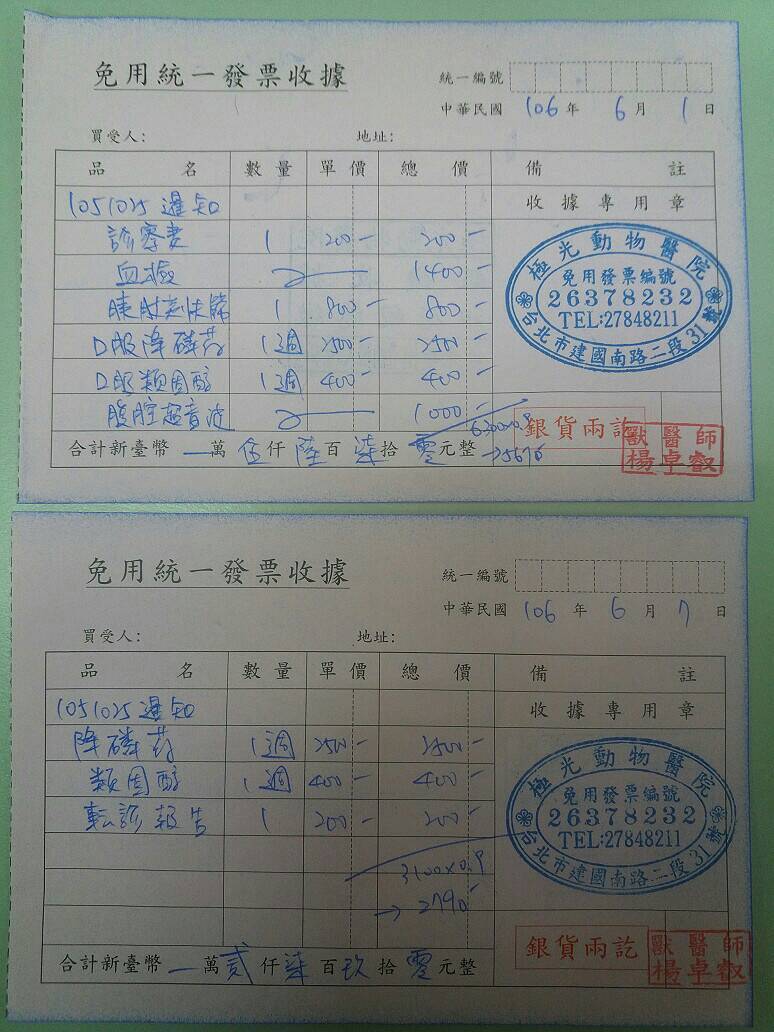 免用統一發票收據
統一編號
中華民國 106 年 6 月 1 日
買受人: 地址:
品 名 數量 單價 總 價 備 註
1051025 暹知 收據專用章
診察費 1 200- 200-
血檢 1400-
胰 1 800- 800-
口服降磷药 1週 2500- 2500-
口服類固醇 1週 400- 400-
腹腔超音波 1000-
6300x0.9
→5670
合計新臺幣 一萬 伍仟 陸百 柒拾 零元整
極光動物醫院
免用發票編號
26378232
TEL:27848211
台北市建國南路二段31號
銀貨兩訖
獸醫師
楊卓叡
免用統一發票收據
統一編號
中華民國 106 年 6 月 7 日
買受人: 地址:
品 名 數量 單價 總 價 備 註
1051025 暹知 收據專用章
降磷药 1週 2500- 2500-
類固醇 1週 400- 400-
転診報告 1 200- 200-
3100x0.9
→2790-
合計新臺幣 一萬 貳仟 柒百 玖拾 零元整
極光動物醫院
免用發票編號
26378232
TEL:27848211
台北市建國南路二段31號
銀貨兩訖
獸醫師
楊卓叡